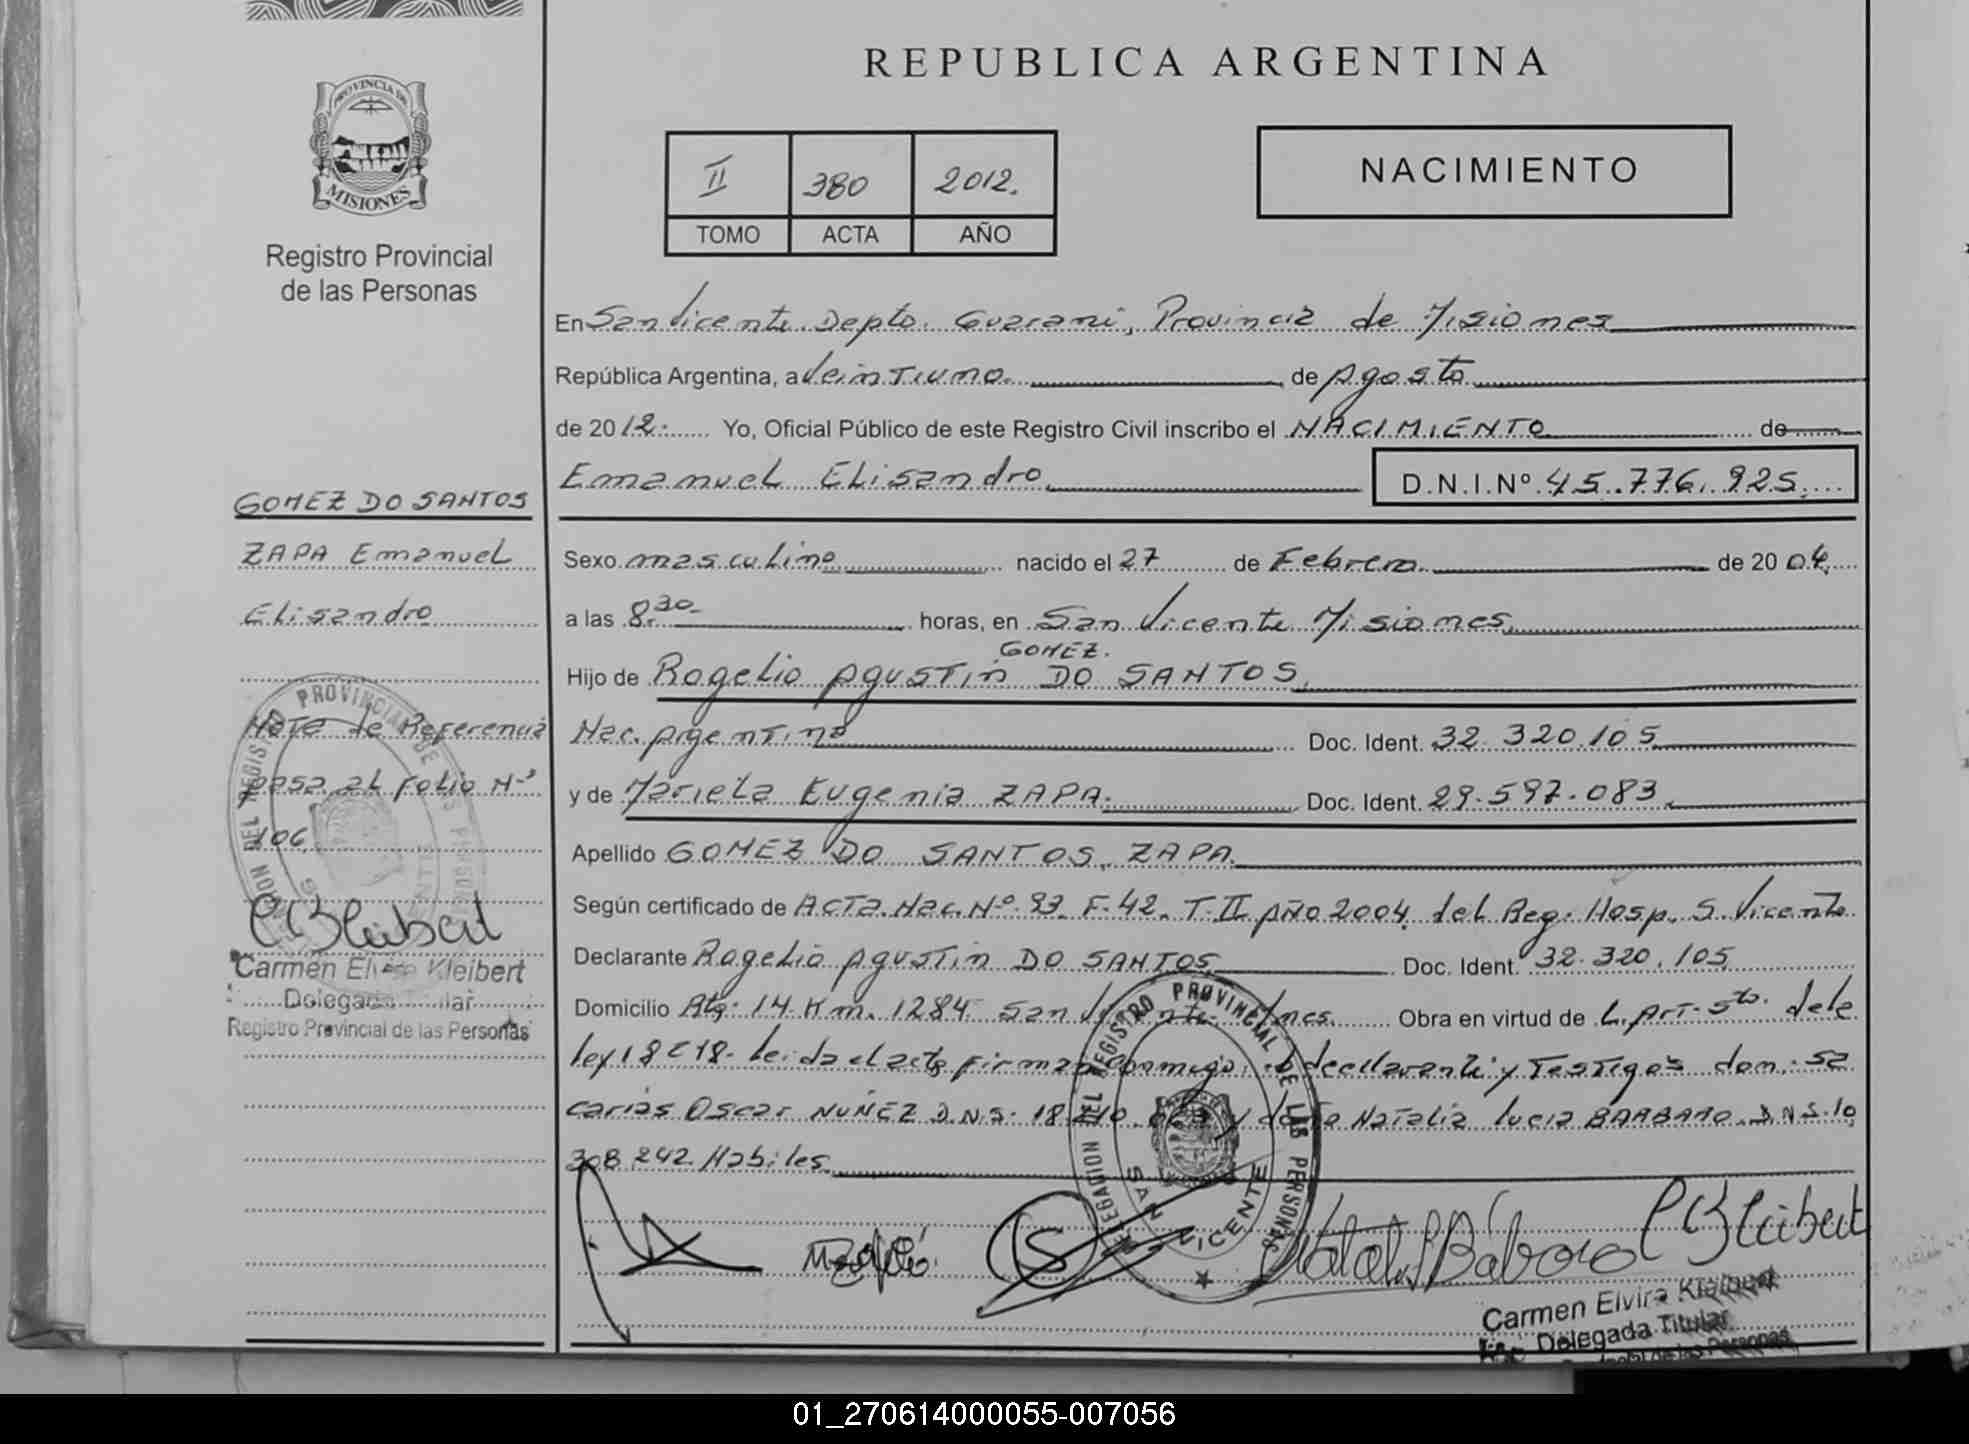 REPUBLICA ARGENTINA
PROVINCIA DE
MISIONES
Registro Provincial
de las Personas
II 380 2012.
TOMO ACTA AÑO
NACIMIENTO
En San Vicente Depto. Guarani, Provincia de Misiones
República Argentina, a Veintiuno de Agosto
de 2012. Yo, Oficial Público de este Registro Civil inscribo el NACIMIENTO de
Emanuel Elisandro D.N.I.Nº 45.776.925.
GOMEZ DO SANTOS
ZAPA Emanuel
Elisandro
Sexo masculino nacido el 27 de Febrero de 2004.
a las 8.30 horas, en San Vicente Misiones.
GOMEZ.
Hijo de Rogelio Agustin DO SANTOS.
Nac. Argentino Doc. Ident. 32.320.105
y de Mariela Eugenia ZAPA. Doc. Ident. 29.597.083.
Apellido GOMEZ DO SANTOS, ZAPA.
Según certificado de Acta Nac. Nº 93. F-42. T-II Año 2004. del Reg. Hosp. S. Vicente
Declarante Rogelio Agustin DO SANTOS Doc. Ident. 32.320.105
Domicilio Km. 1284. San Obra en virtud de L. Art-5to. de la
ley Leida el acta firman conmigo, declarante y Testigos don: Sa
carias Oscar NUÑEZ D.N.I. y doña Natalia Lucia BARBARO. D.N.I. 10
308.242 Habiles.
Nota de Referencia
pasa al Folio Nº
106
CBKleibert
Carmen Elvira Kleibert
Delegada Titular
Registro Provincial de las Personas
DELEGACION DEL REGISTRO PROVINCIAL DE LAS PERSONAS
SAN VICENTE
DELEGACION DEL REGISTRO PROVINCIAL DE LAS PERSONAS
SAN VICENTE
CBKleibert
Carmen Elvira Kleibert
Delegada Titular
de las Personas
01_270614000055-007056